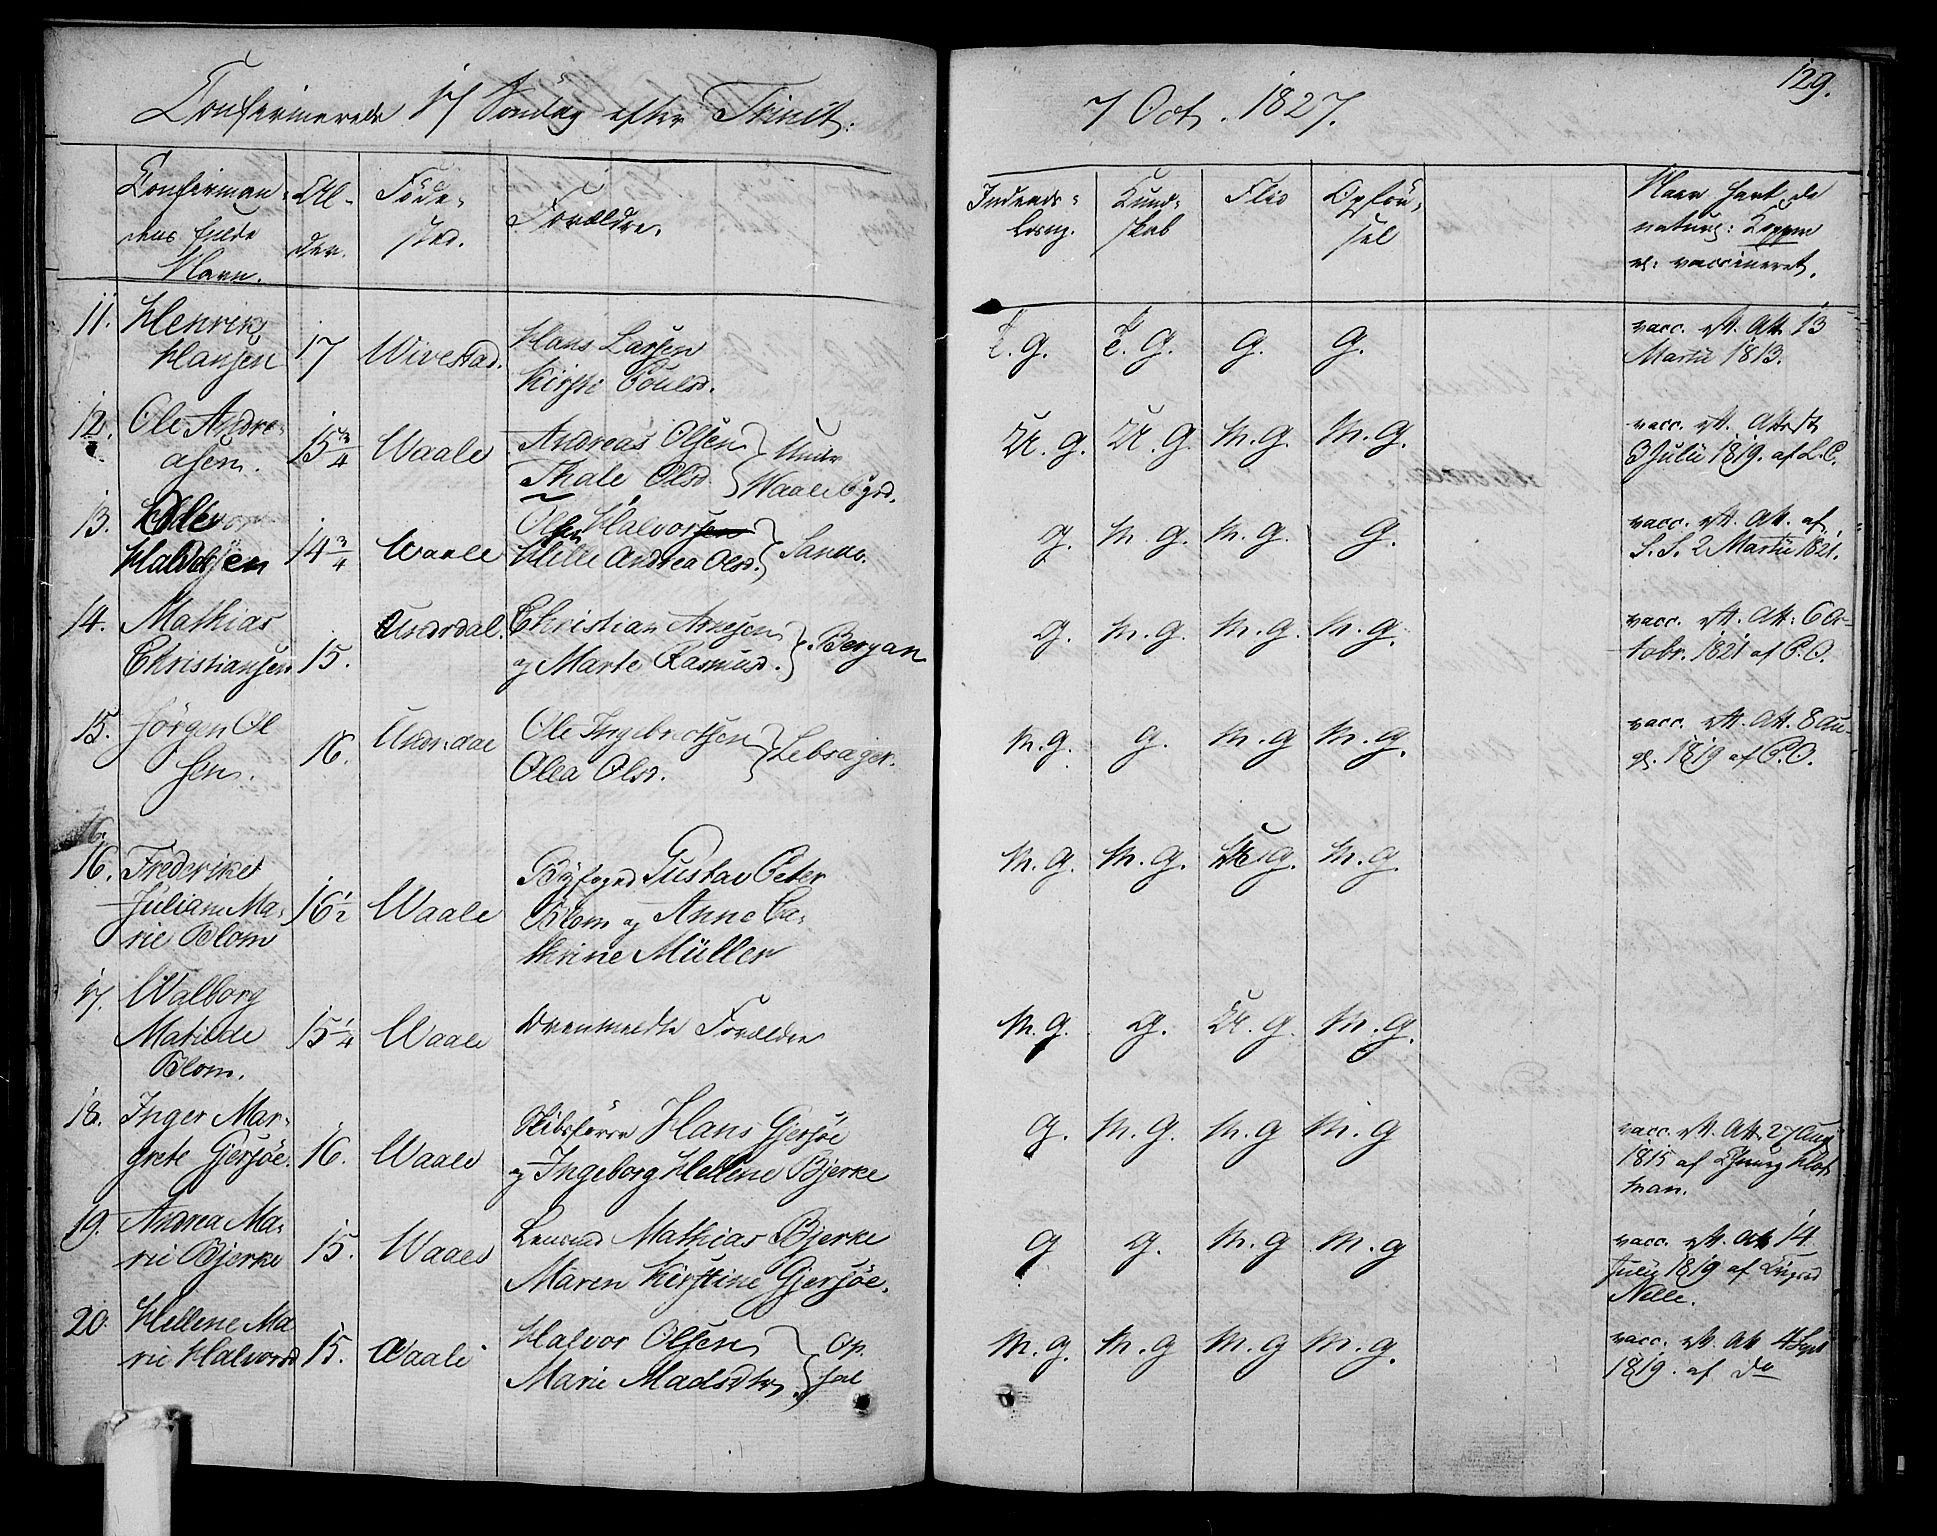 Confirmerede 17 Söndag efter Trinit:
7 Oct. 1827.
129.
Confirman-
dens fulde
Navn.
Al-
der.
Föde-
sted.
Forældre.
Indenads-
læsng.
Kund-
skab
Flid
Opför-
sel
Naar havt de
naturl: Kopper
el: vaccineret.
11. Henrik
Hansen
17
Wivestad.
Hans Larsen
Kirsti Pouls.
T. G.
T. G.
G.
G.
vacc. Att. 13
Martii 1813.
12. Ole Andre-
asen.
15 3/4
Waale
Andreas Olsen
Thale Olsd
Under
Waale
U. G.
U. G.
M. G.
M. G.
vacc. Attest
3 Julii 1819. af L. C.
13.
Halvorsen
14 3/4
Waale
Olsen Halvor
Helle Andrea Olsd.
Sande.
G.
M. G.
M. G.
G.
vacc. Att. af
S. S. 2 Martii 1821.
14. Mathias
Christiansen
15.
Undrdal.
Christian Arnesen
og Marte Rasmusd.
Bergan
G.
M. G.
M. G.
M. G.
vacc. Att: 6 Oc-
tobr. 1821 af P. O.
15. Jörgen Ol
sen.
16.
Undrdal
Ole Ingebretsen
Olea Olsd.
Lebsager.
M. G.
G.
M. G
M. G.
vacc. Att. 8 au-
g. 1819 af P. O.
16. Frederiket
Juliane Ma-
rie Blom
16 1/2
Waale
Byfoged Gustav Peter
Blom og Anne Ca-
thrine Müller
M. G.
M. G.
G.
M. G.
17. Walborg
Matilde
Blom.
15 1/4
Waale
Ovenmeldte Forældre
M. G.
G.
U. G.
M. G.
18. Inger Mar-
grete Gjersöe.
16.
Waale
Skibsförer Hans Gjersöe
og Ingeborg Hellene Bjerke
G.
M. G.
M. G
M. G
vacc. Att. 27 Aug
1815 af
man.
19. Andrea Ma-
rie Bjerke
15.
Waale
Mathias Bjerke
Maren Kirstine Gjersöe.
G
G.
M. G
M. G
vacc. Att 14
Julii 1819 af
Nelle.
20. Hellene Ma
rie Halvorsd
15.
Waale
Halvor Olsen
Marie Madsdtr
Op-
sal
M. G.
M. G
M. G
M. G.
vacc. Att 4 Sept
1819. af Do